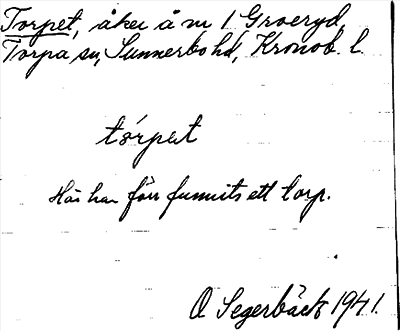 Torpet, åker å nr 1 Groeryd,
Torpa sn, Sunnerbo hd, Kronob. l.
tórpet
Här har förr funnits ett torp.
O Segerbäck 1941.